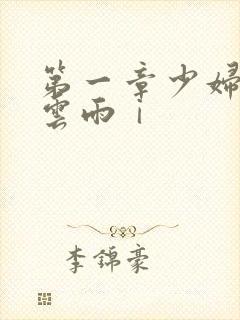 第一章少婦
雲雨1
李錦豪